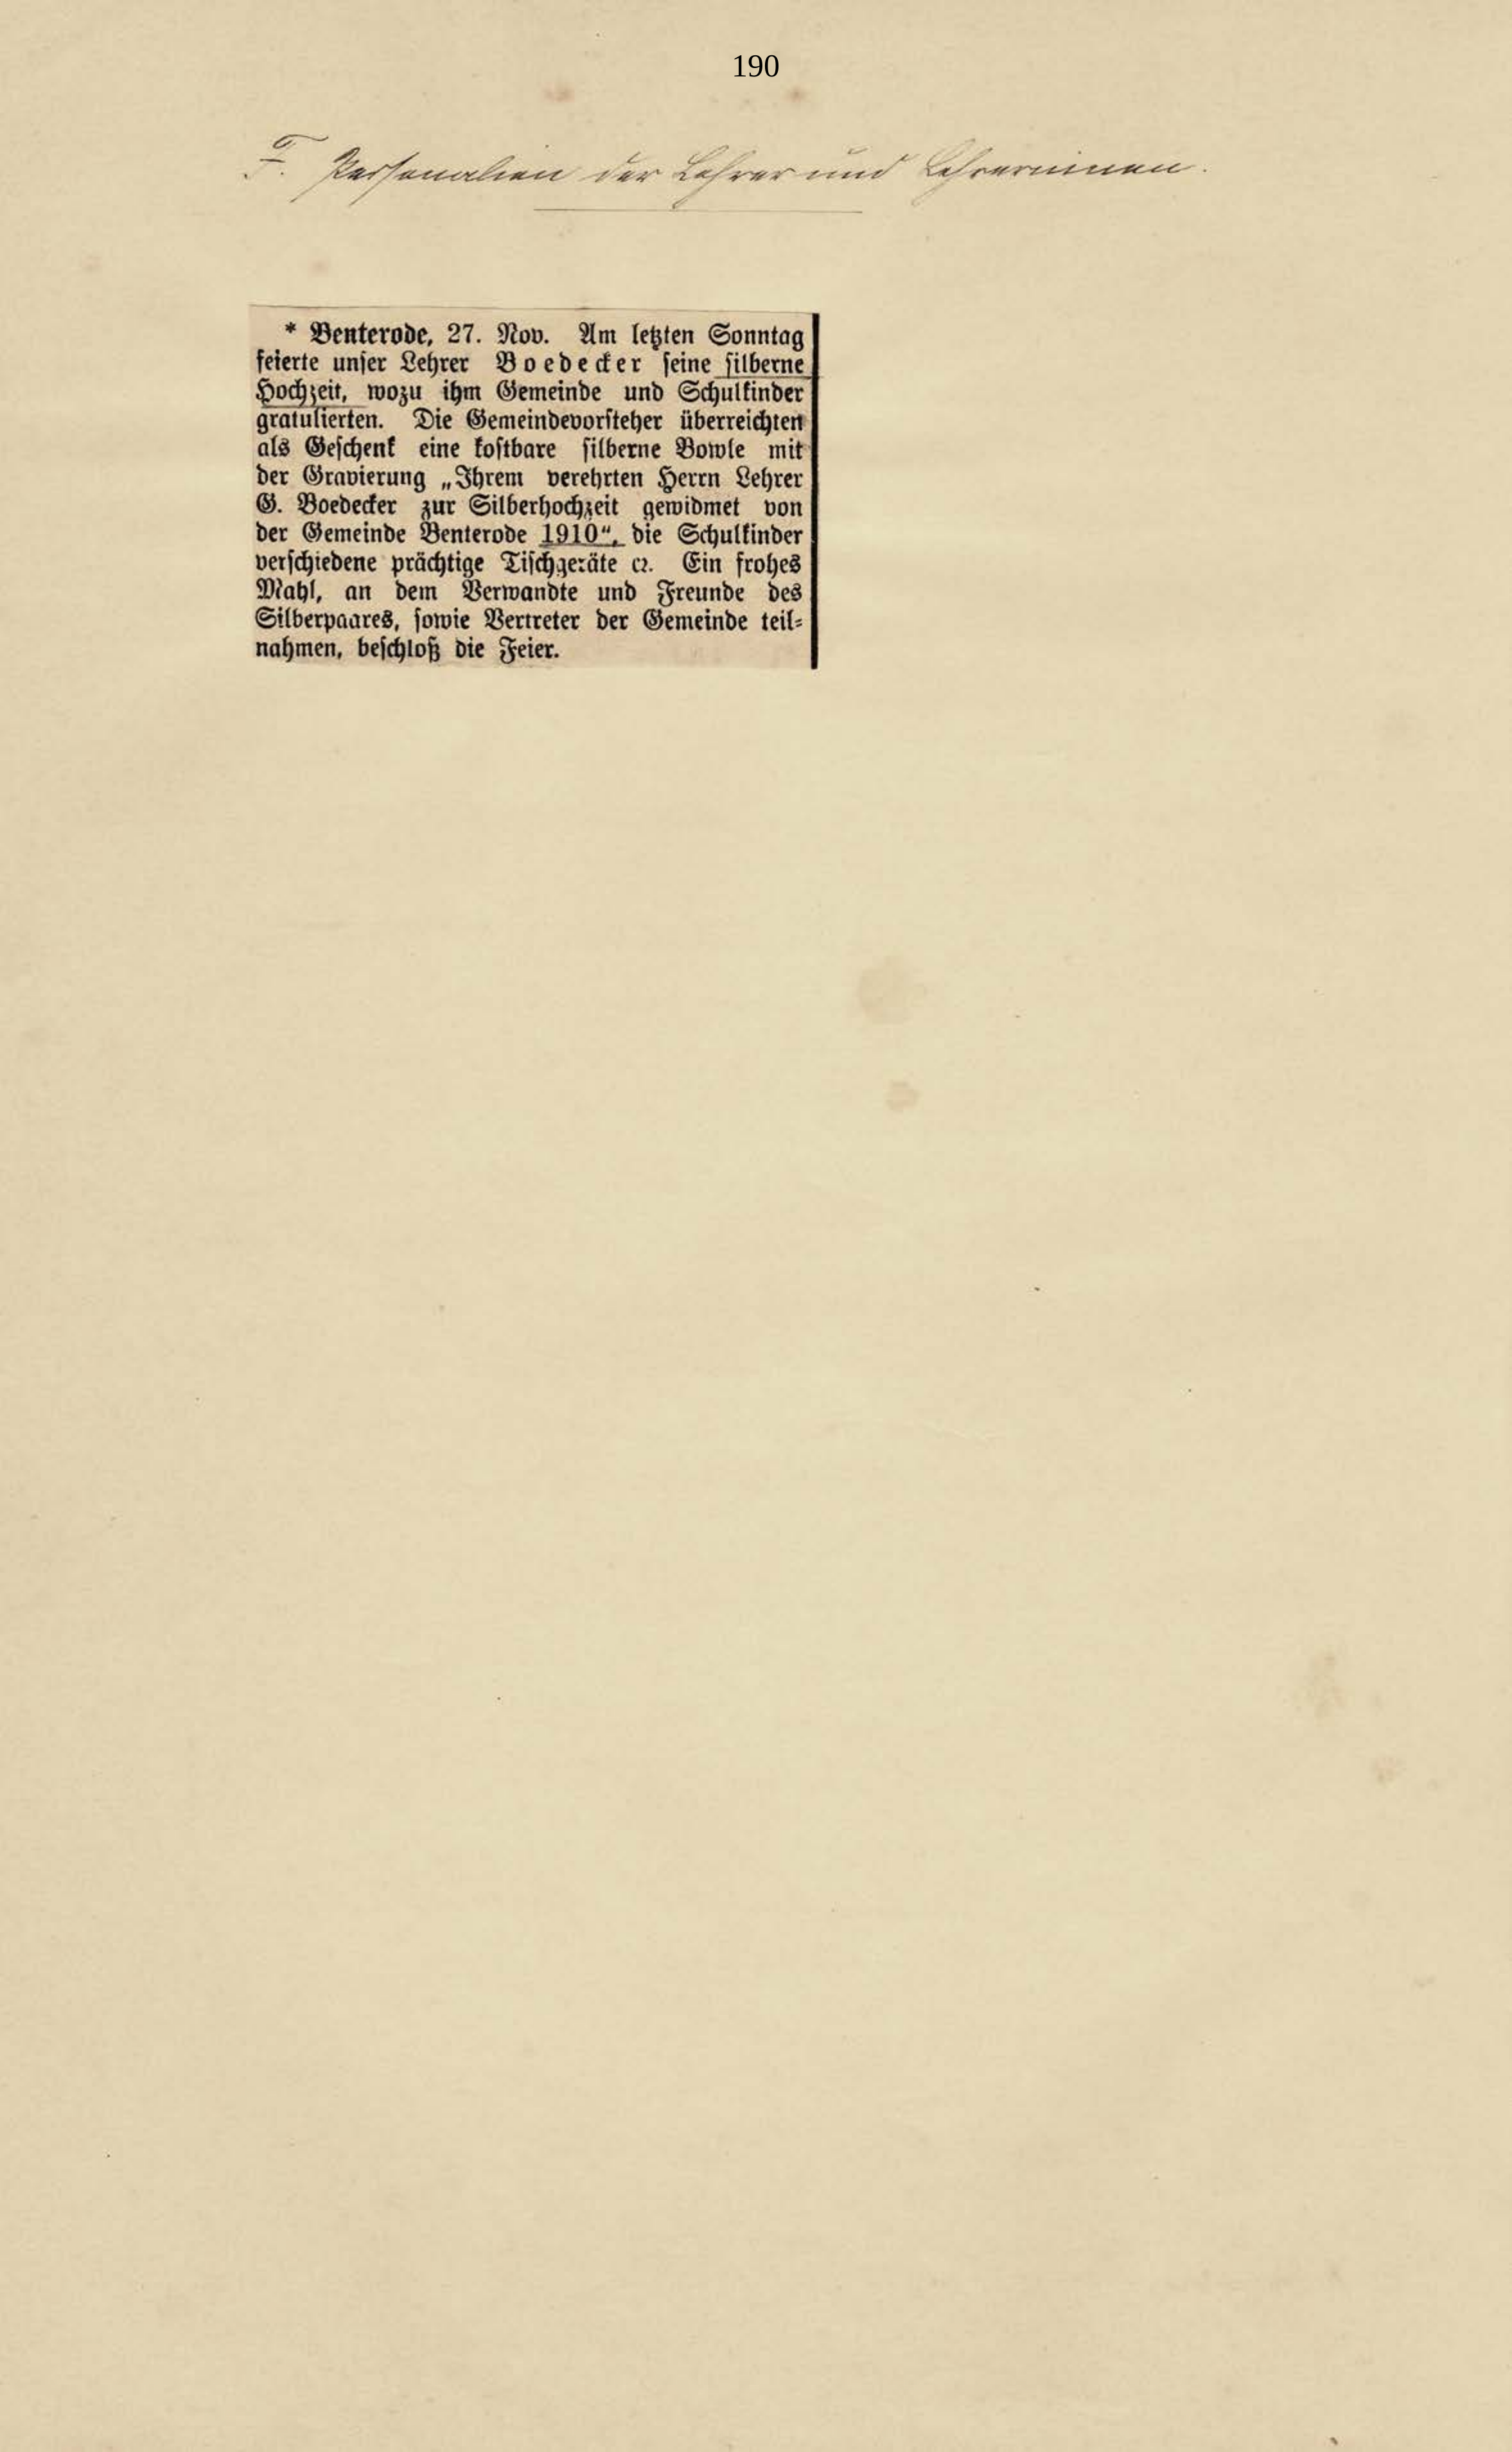 190
F. Personalien der Lehrer und Lehrerinnen.
* Benterode, 27. Nov. Am letzten Sonntag
feierte unser Lehrer Boedecker seine silberne
Hochzeit, wozu ihm Gemeinde und Schulkinder
gratulierten. Die Gemeindevorsteher überreichten
als Geschenk eine kostbare silberne Bowle mit
der Gravierung „Ihrem verehrten Herrn Lehrer
G. Boedecker zur Silberhochzeit gewidmet von
der Gemeinde Benterode 1910“, die Schulkinder
verschiedene prächtige Tischgeräte ꝛc. Ein frohes
Mahl, an dem Verwandte und Freunde des
Silberpaares, sowie Vertreter der Gemeinde teil-
nahmen, beschloß die Feier.